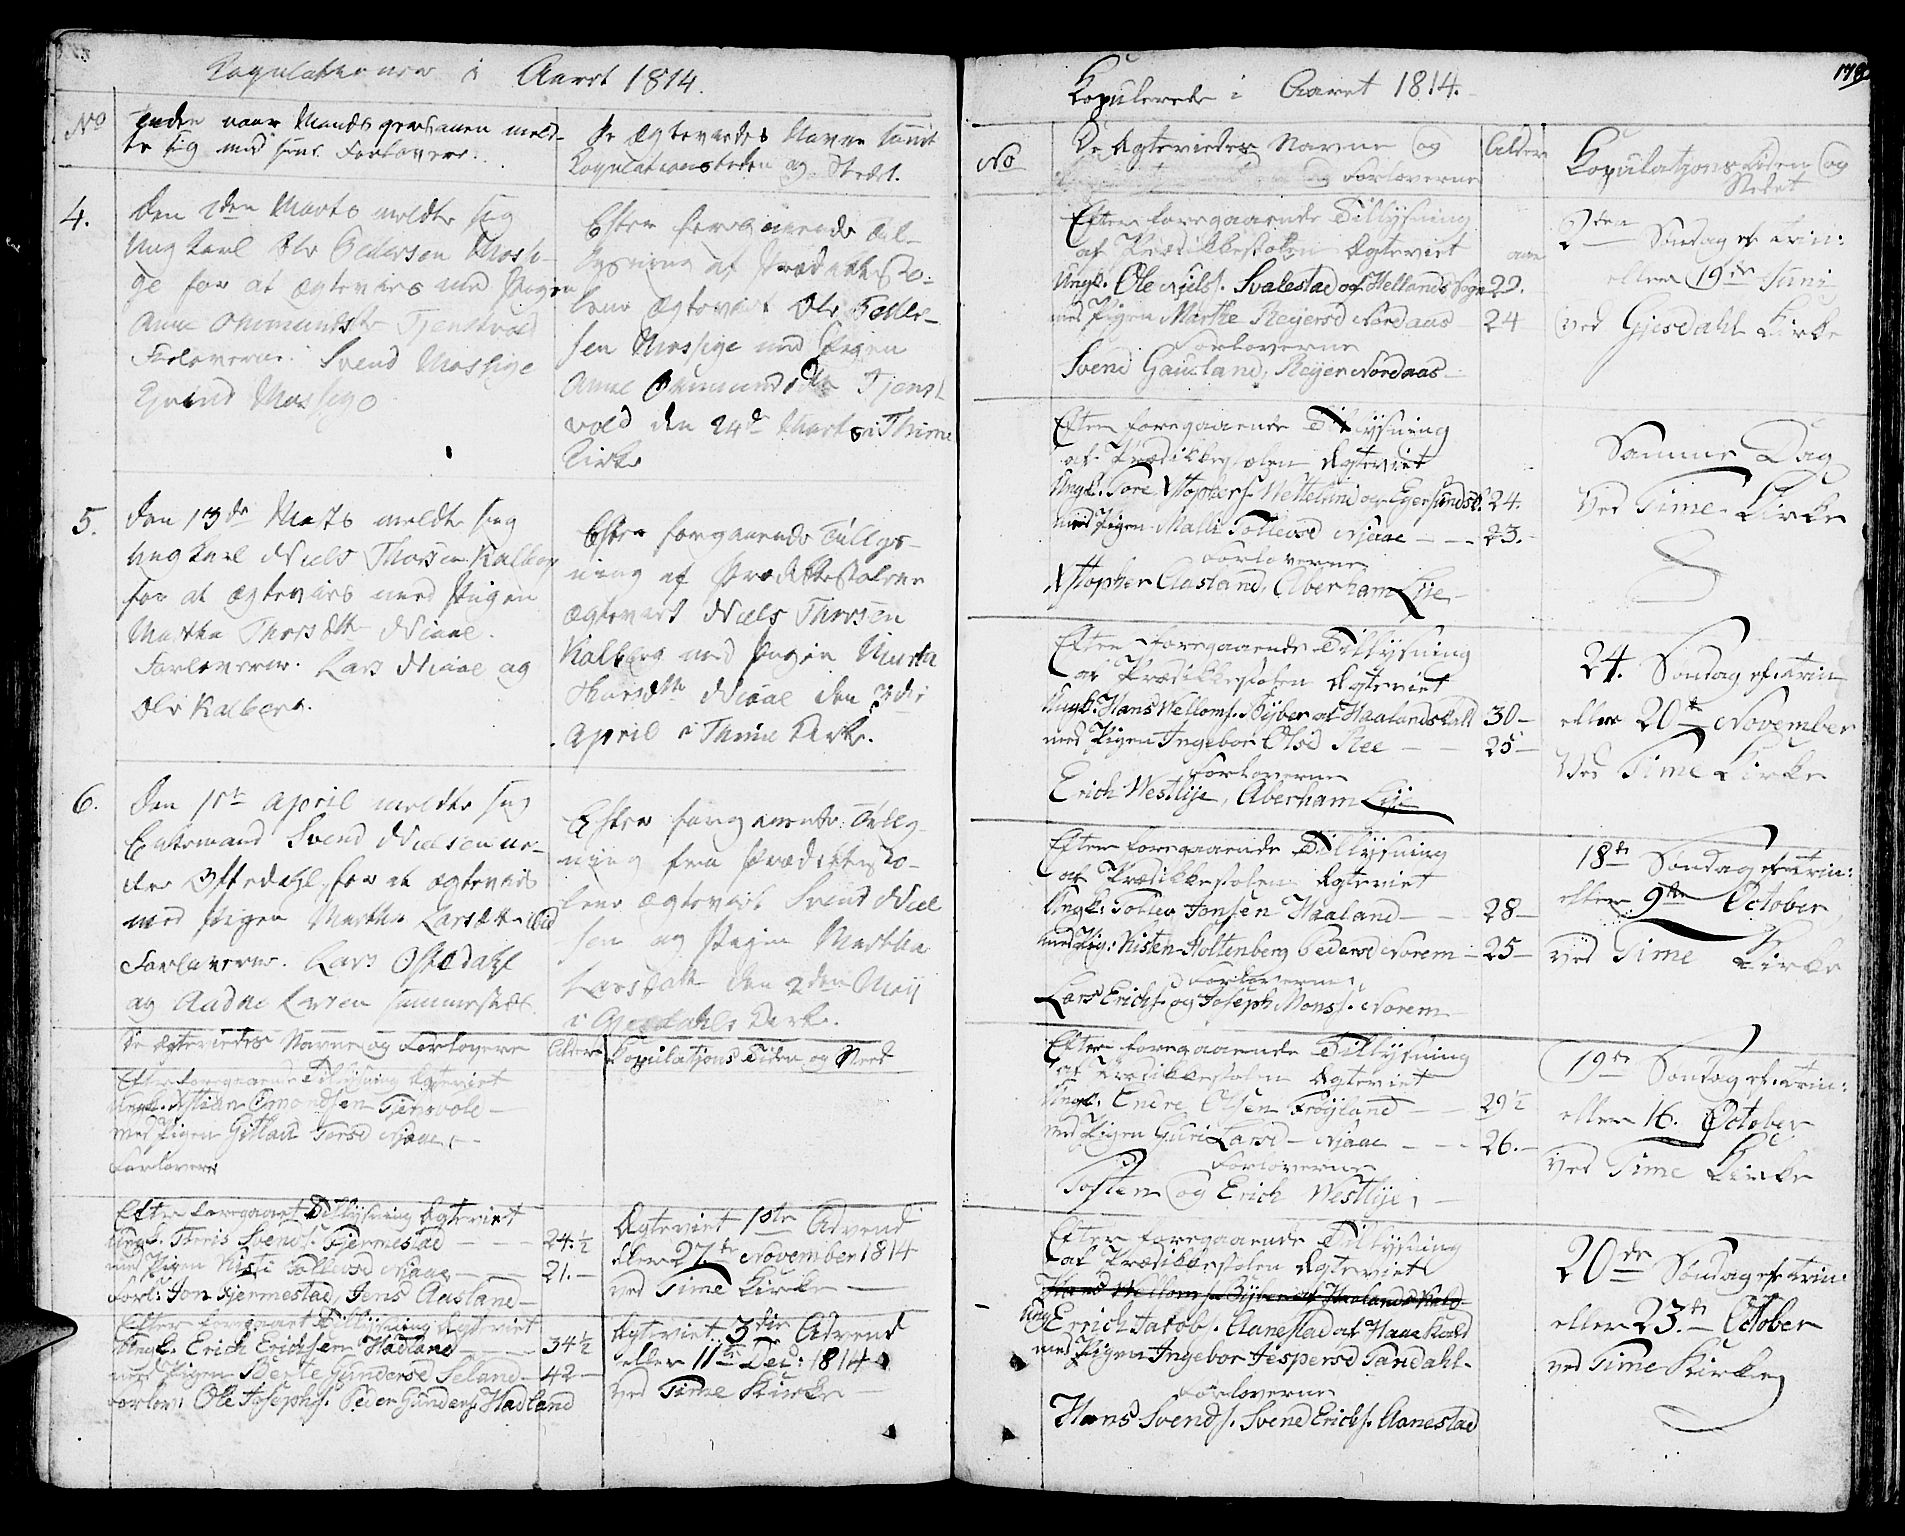 Kopulationer i Aaret 1814.
No
Tiden naar Mandspersonen meld-
te sig med sine Forlovere.
De Ægteviedes Navne samt
Kopulationstiden og Stedet.
4.
Den 2den Marts meldte sig
Ungkarl Ole Pedersen Mossi-
ge for at ægtevies med Pigen
Anne Ommundsdtr Tjensvold
Forloverne. Svend Mossige
Eivind Mossige
Efter foregaaende Til-
lysning af Prædikesto-
lene Ægteviet Ole Peder-
sen Mossige med Pigen
Anne Ommundsdtr Tjens-
vold den 24de Marts i Thime
Kirke
5.
Den 13de Marts meldte sig
Ungkarl Niels Thorsen Kalberg
for at ægtevies med Pigen
Martha Thorsdtr Niaae.
Forloverne. Lars Niaae og
Ole Kalberg.
Efter foregaaende Tillys-
ning af Prædikestolene
Ægteviet Niels Thorsen
Kalberg med Pigen Martha
Thorsdtr Niaae den 3die
April i Thime Kirke.
6.
Den 11te April meldte sig
Enkemand Svend Nielsen ne-
dre Oftedahl, for at ægtevies
med Pigen Martha Larsdtr ibid
Forloverne. Lars Oftedahl
og Aadne Larsen sammesteds.
Efter foregaaende Tillys-
ning fra Prædikesto-
lene ægteviet Svend Niel
sen og Pigen Martha
Larsdatter den 2den Maij
i Gjesdahls Kirke.
De Ægteviedes Navne og Forlovere
Alder
Kopulations Tiden og Sted
Efter foregaaende Tillysning Ægteviet
Ungk. Kstian Omondsen Tjensvold
med Pigen Gitlau Torsd Njaae
Forlovere
Efter foregaaet Tillysning Ægteviet
Ungk. Theris Svends. Fjermestad 24.½
med Pigen Kisti Tollevsd Njaae 21.
Forl: Jon Fjermestad, Jens Aasland
Ægteviet 1ste Advend
eller 27de November 1814
ved Time Kirke
Efter foregaaet Tillysning Ægteviet
Ungk. Erich Erichsen Hadland 34½
med Pigen Berte Gundersd Seland 42
Forlov: Ole Josephs. Peder Gunders. Hadland
Ægteviet 3die Advend
eller 11te Dec: 1814
ved Time Kirke
Kopulerede i Aaret 1814.
No
De Ægteviedes Navne og
og Forloverne
Alder
Kopulations Tiden og
Stedet
Efter foregaaende Tillysning
af Prædikkestolen Ægteviet
Ungk. Ole Niels. Svalestad af Hellands Sogn 29.
med Pigen Marthe Reijersd Nordaas 24
Forloverne
Svend Gausland, Reijer Nordaas
2den Søndag ef. Trin:
eller 19de Juni
ved Gjesdahl Kirke
Efter foregaaende Tillysning
af Prædikkestolen Ægteviet
Ungk. Tore Kstophers. Wetteland af Egersunds. 24.
med Pigen Malli Tollevsd Njaae 23.
Forloverne
Kstopher Aasland, Aberham Lije
Samme Dag
Ved Time Kirke
Efter foregaaende Tillysning
af Prædikkestolen Ægteviet
Ungk. Hans Welloms. Byber af Haalands Kald 30
med Pigen Ingebor Olsd Ree 25
Forloverne
Erich Westlije, Aberham Lije
24. Søndag ef. Trin
eller 20de November
Ved Time Kirke
Efter foregaaende Tillysning
af Prædikkestolen Ægteviet
Ungk: Tollev Jonsen Haaland 28
med Pig: Kisten Holtenberg Pedersd Norem 25
Forloverne
Lars Erichs. og Joseph Mons. Norem
18de Søndag ef. Trin:
eller 9de October
ved Time Kirke
Efter foregaaende Tillysning
af Prædikkestolen Ægteviet
Ungk: Endre Olsen Frøyland 29½
med Pigen Guri Larsd Njaae 26.
Forloverne
Tosten og Erich Westlije,
19de Søndag ef. Trin:
eller 16. October
ved Time Kirke
Efter foregaaende Tillysning
af Prædikkestolen Ægteviet
Hans Welloms. Byber af Haalands Kald
Ungk Errich Jakobs. Aanestad af Haae Kald
med Pigen Ingebor Jespersd Tandahl
Forloverne
Hans Svends. Svend Erichs. Aanestad
20de Søndag ef. Trin:
eller 23de October
ved Time Kirke